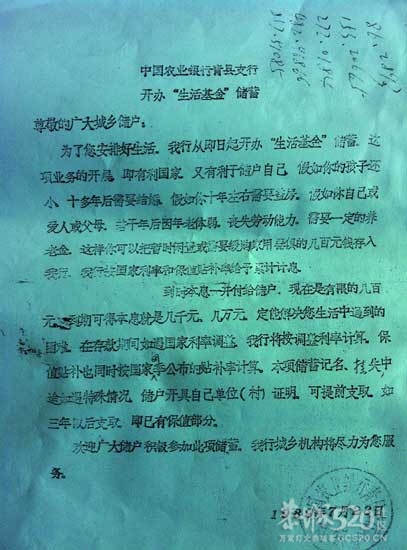 中国农业银行青县支行
开办“生活基金”储蓄
尊敬的广大城乡储户：
为了您安排好生活，我行从即日起开办“生活基金”储蓄。这
项业务的开展，即有利国家，又有利于储户自己，假如你的孩子还
小，十多年后需要结婚，假如你十年左右需要盖房，假如你自己或
爱人或父母，若干年后因年老体弱，丧失劳动能力，需要一定的养
老金，这样你可以把暂时闲置或需要的几百元钱存入
我行，我行按国家利率和保值贴补率给予累计计息，
到期本息一并付给储户，现在是有限的几百
元，到期可得本息就是几千元，几万元，定能解决您生活中遇到的
困难，在存款期间如遇国家利率调整，我行将按调整利率计算，保
值贴补也同时按国家季公布的贴补率计算。本项储蓄记名，挂失中
途如遇特殊情况，储户开具自己单位（村）证明，可提前支取，如
三年以后支取，即已有保值部分。
欢迎广大储户积极参加此项储蓄，我行城乡机构将尽力为您服
务。
1989年7月23日
520社区
GCS20.CN